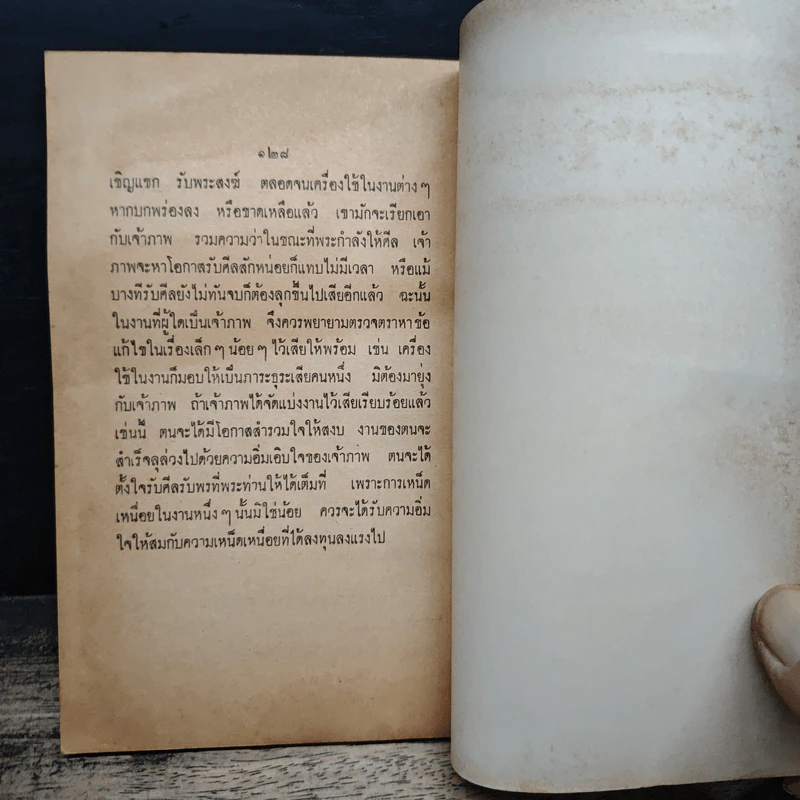 ๑๒๘
เชิญแขก รับพระสงฆ์ ตลอดจนเครื่องใช้ในงานต่าง ๆ
หากบกพร่องลง หรือขาดเหลือแล้ว เขามักจะเรียกเอา
กับเจ้าภาพ รวมความว่าในขณะที่พระกำลังให้ศีล เจ้า
ภาพจะหาโอกาสรับศีลสักหน่อยก็แทบไม่มีเวลา หรือแม้
บางทีรับศีลยังไม่ทันจบก็ต้องลุกขึ้นไปเสียอีกแล้ว ฉะนั้น
ในงานที่ผู้ใดเป็นเจ้าภาพ จึงควรพยายามตรวจตราหาข้อ
แก้ไขในเรื่องเล็ก ๆ น้อย ๆ ไว้เสียให้พร้อม เช่น เครื่อง
ใช้ในงานก็มอบให้เป็นภาระธุระเสียคนหนึ่ง มิต้องมายุ่ง
กับเจ้าภาพ ถ้าเจ้าภาพได้จัดแบ่งงานไว้เสียเรียบร้อยแล้ว
เช่นนี้ ตนจะได้มีโอกาสสำรวมใจให้สงบ งานของตนจะ
สำเร็จลุล่วงไปด้วยความอิ่มเอิบใจของเจ้าภาพ ตนจะได้
ตั้งใจรับศีลรับพรที่พระท่านให้ได้เต็มที่ เพราะการเหน็ด
เหนื่อยในงานหนึ่ง ๆ นั้นมิใช่น้อย ควรจะได้รับความอิ่ม
ใจให้สมกับความเหน็ดเหนื่อยที่ได้ลงทุนลงแรงไป